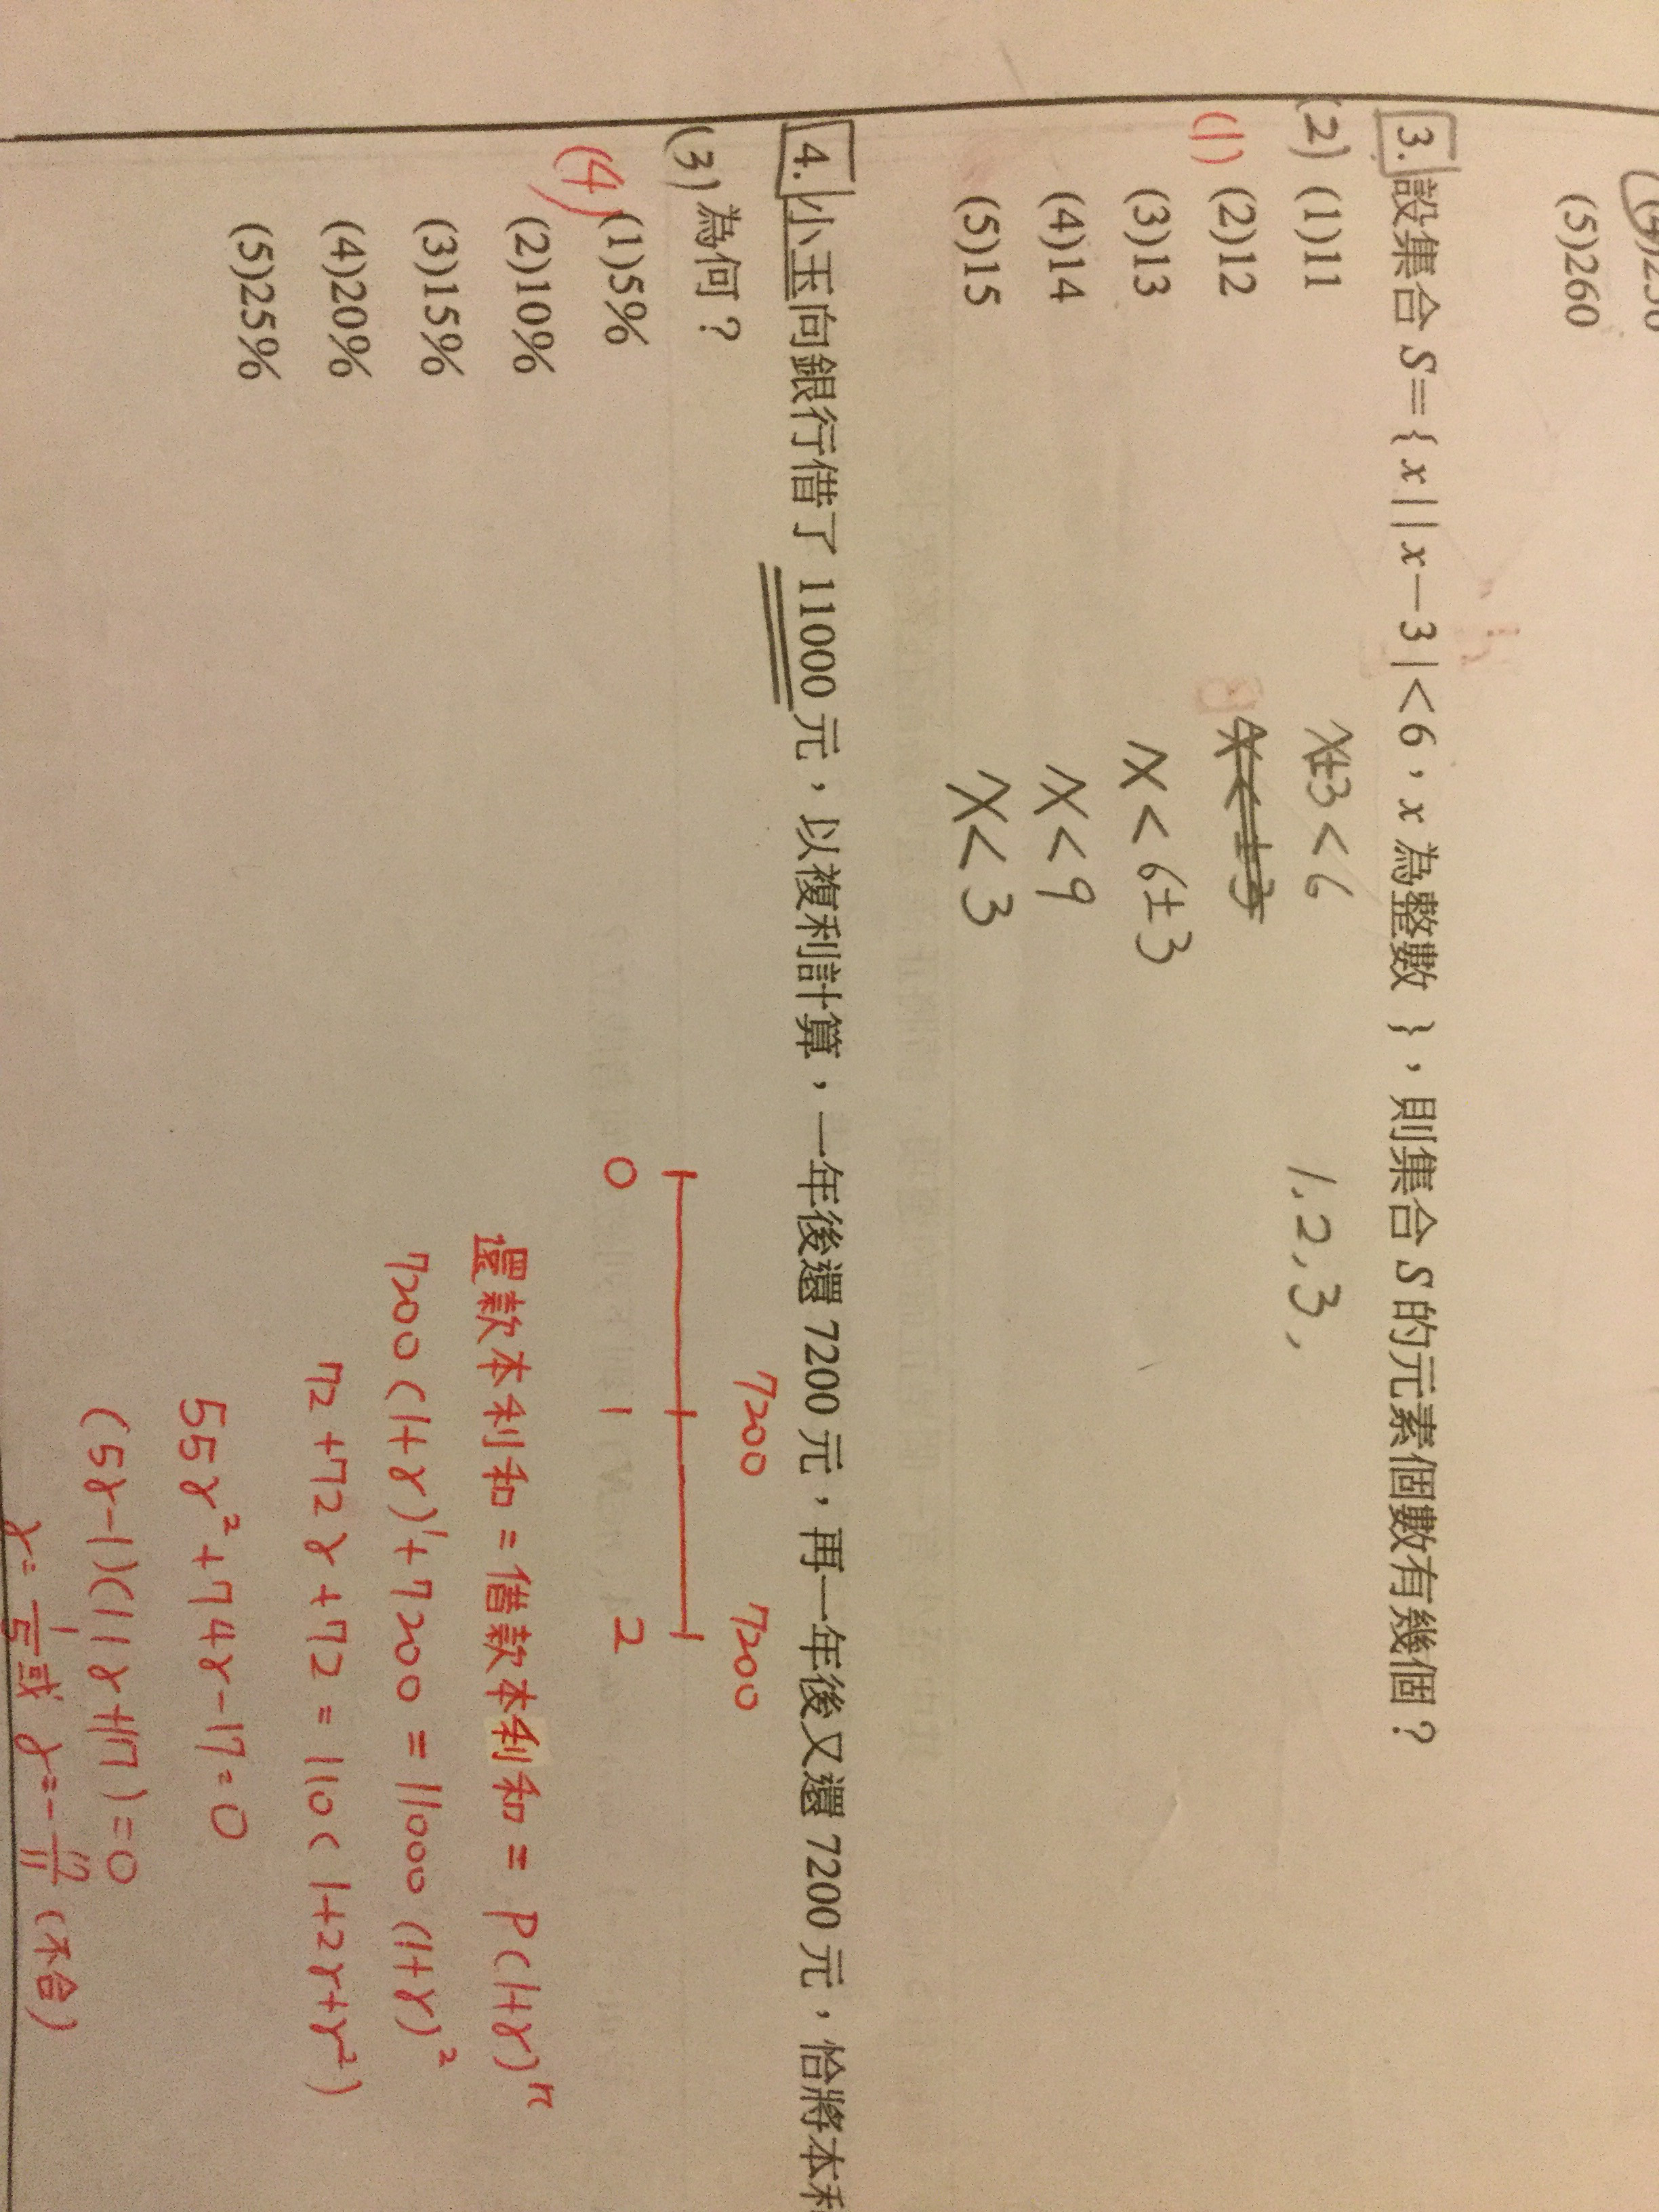 (4)250
(5)260
3.設集合 S={ x | | x－3 |<6，x 為整數 }，則集合 S 的元素個數有幾個？
(2) (1)11
(1) (2)12
(3)13
(4)14
(5)15
x±3<6
x<±3
x<6±3
x<9
x<3
1,2,3,
4.小玉向銀行借了 11000 元，以複利計算，一年後還 7200 元，再一年後又還 7200 元，恰將本利
(3) 為何？
(4) (1)5%
(2)10%
(3)15%
(4)20%
(5)25%
7200 7200
0 1 2
還款本利和 = 借款本利和 = P(1+r)ⁿ
7200(1+r)¹+7200 = 11000(1+r)²
72+72r+72 = 110(1+2r+r²)
55r²+74r-17=0
(5r-1)(11r+17)=0
r=1/5或 r=-17/11 (不合)